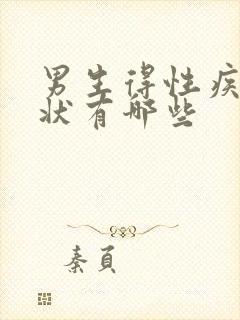 男生得性疾
状有哪些
秦頁